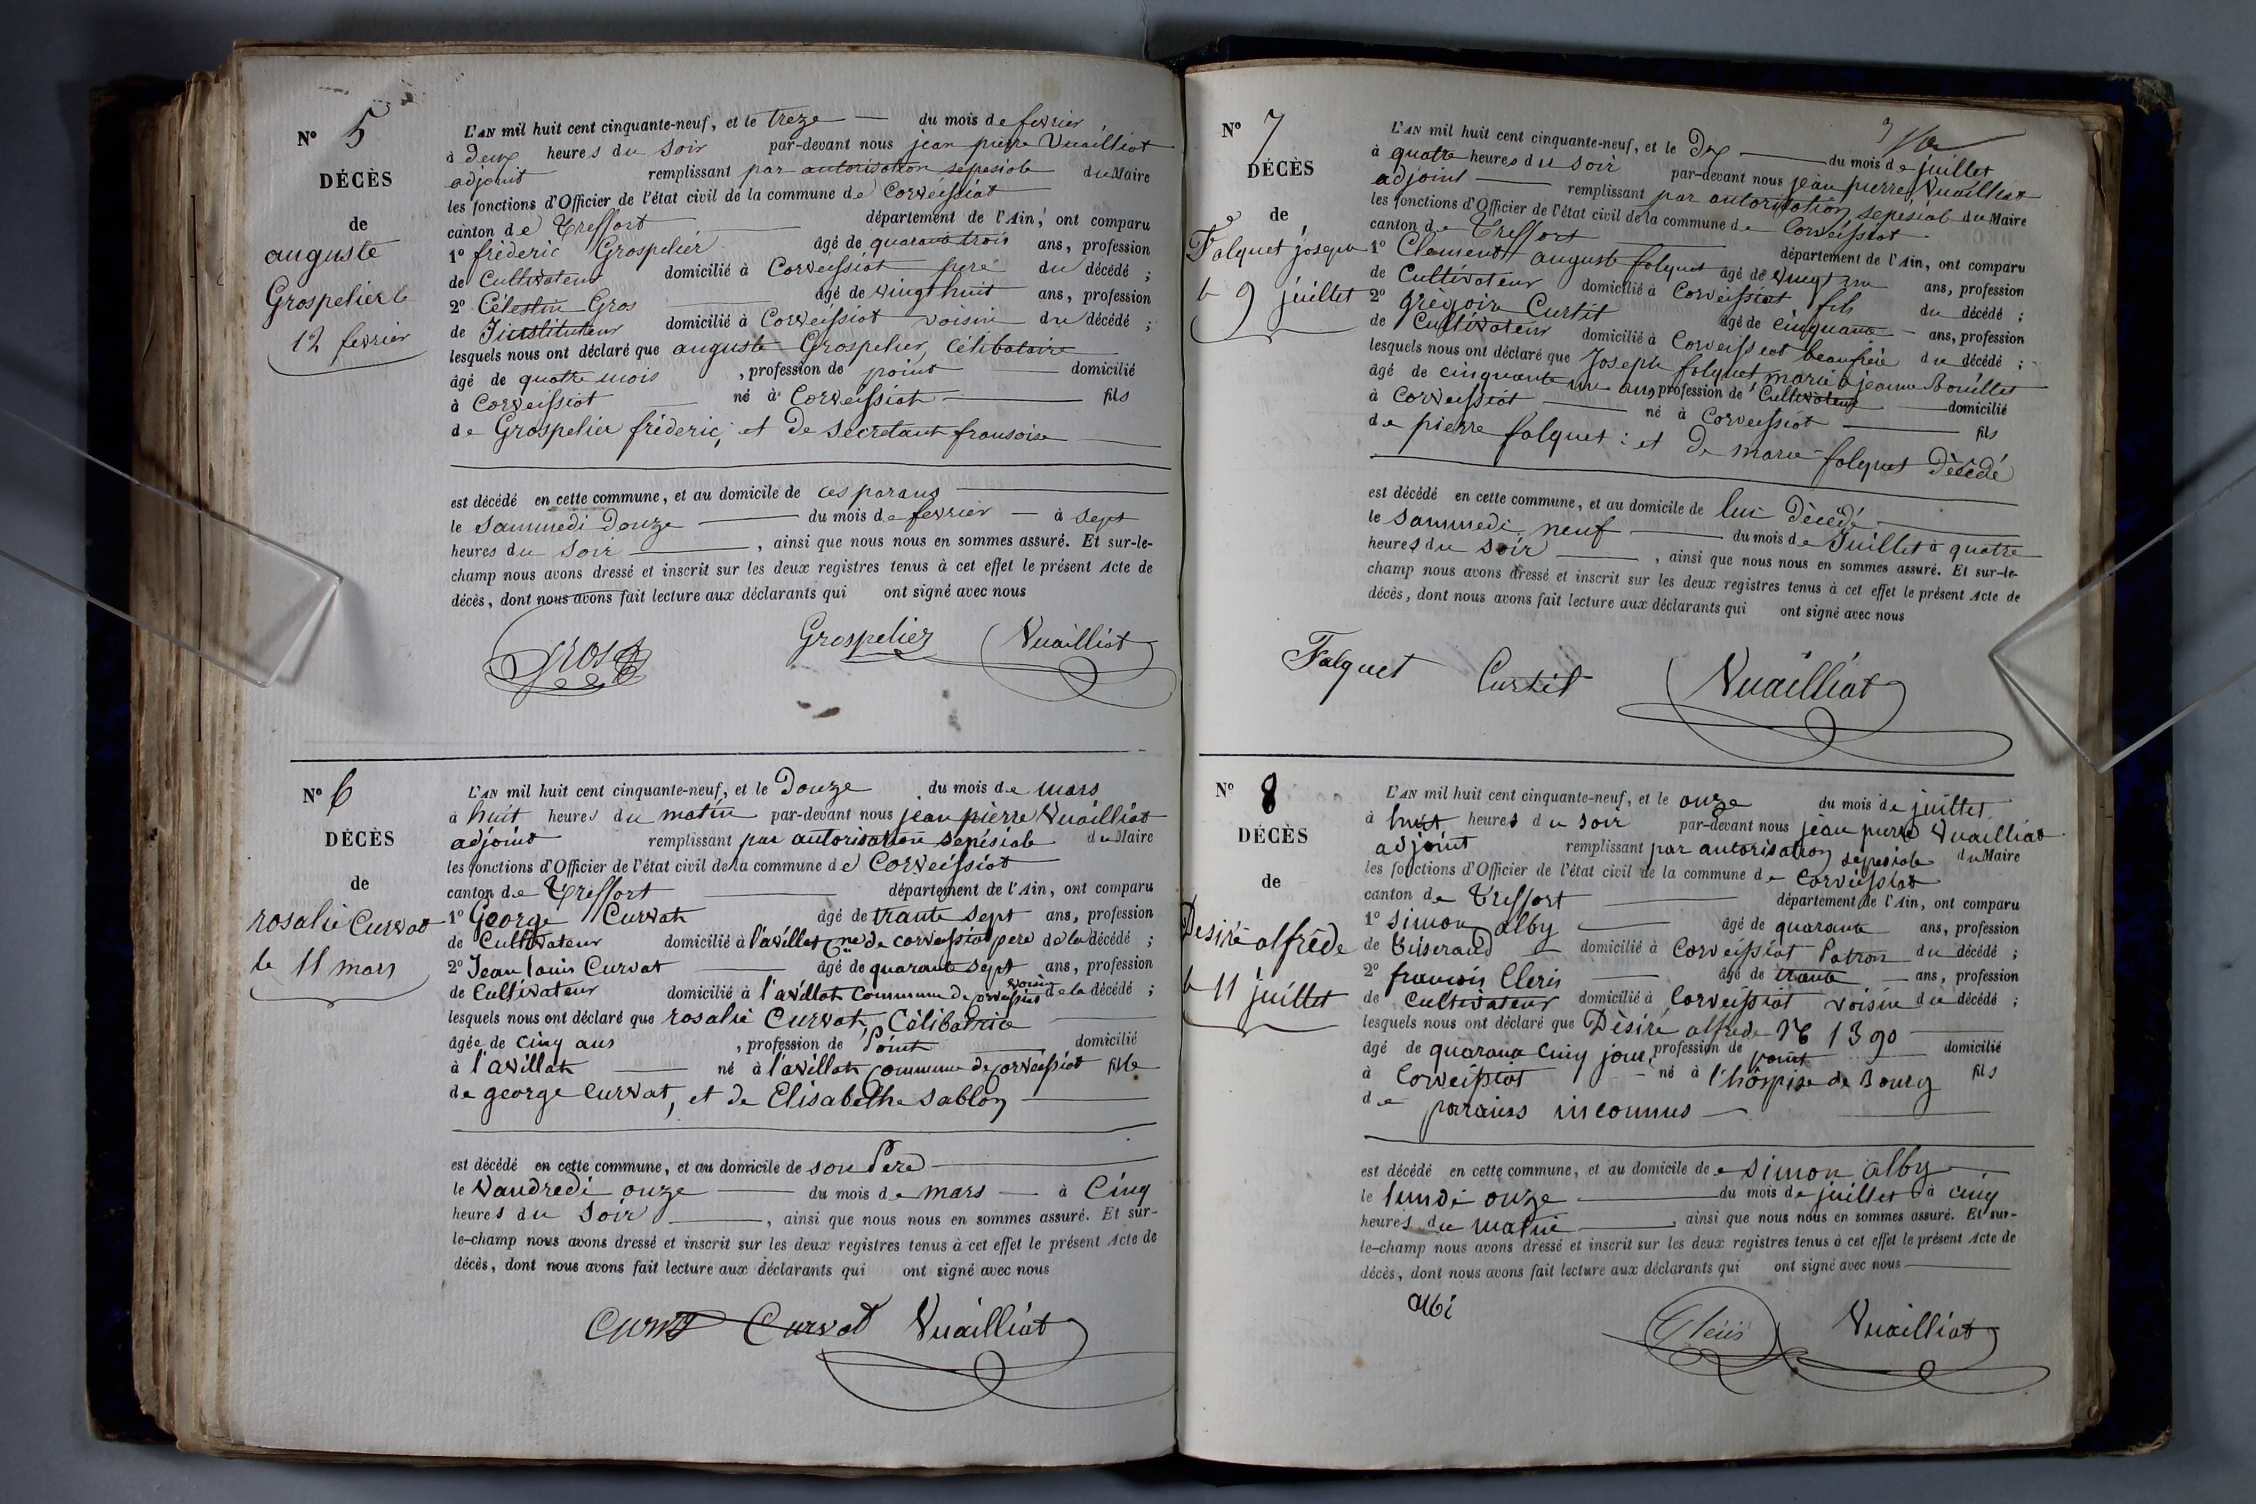 N° 5
DÉCÈS
de
auguste
Grospelier le
12 fevrier
L'AN mil huit cent cinquante-neuf, et le treze du mois de fevrier
à deux heures du soir par-devant nous jean pierre Vuailliat
adjoint remplissant par autorisation sepesiale du Maire
les fonctions d'Officier de l'état civil de la commune de Corveissiat
canton de Treffort département de l'Ain, ont comparu
1° fréderic Grospelier âgé de quarante trois ans, profession
de Cultivateur domicilié à Corveissiat pere du décédé ;
2° Célestin Gros âgé de vingt huit ans, profession
de Jinstituteur domicilié à Corveissiat voisin du décédé ;
lesquels nous ont déclaré que auguste Grospelier, Célibataire
âgé de quatre mois , profession de point domicilié
à Corveissiat né à Corveissiat fils
de Grospelier fréderic, et de secretant fransoise
est décédé en cette commune, et au domicile de ces parans
le sammedi Douze du mois de fevrier à sept
heures du soir , ainsi que nous nous en sommes assuré. Et sur-le-
champ nous avons dressé et inscrit sur les deux registres tenus à cet effet le présent Acte de
décès, dont nous avons fait lecture aux déclarants qui ont signé avec nous
Gros Grospelier Vuailliat
N° 6
DÉCÈS
de
rosalie Curvat
le 11 mars
L'AN mil huit cent cinquante-neuf, et le Douze du mois de mars
à huit heures du matin par-devant nous jean pierre Vuailliat
adjoint remplissant par autorisation sepésiale du Maire
les fonctions d'Officier de l'état civil de la commune de Corveissiat
canton de Treffort département de l'Ain, ont comparu
1° George Curvat âgé de trante sept ans, profession
de Cultivateur domicilié à l'avillat Cne de corveissiat pere de la décédé ;
2° Jean louis Curvat âgé de quarante sept ans, profession
de Cultivateur domicilié à l'avillat Commune de corveissiat voisin de la décédé ;
lesquels nous ont déclaré que rosalie Curvat, Célibatrice
âgée de cinq ans , profession de Point domicilié
à l'avillat né à l'avillat commune de corveissiat fille
de george Curvat, et de Elisabethe sablon
est décédé en cette commune, et au domicile de son Pere
le Vandredi onze du mois de mars à Cinq
heures du Soir , ainsi que nous nous en sommes assuré. Et sur-
le-champ nous avons dressé et inscrit sur les deux registres tenus à cet effet le présent Acte de
décès, dont nous avons fait lecture aux déclarants qui ont signé avec nous
Curvat Curvat Vuailliat
N° 7
DÉCÈS
de
Falquet joseph
le 9 juillet
L'AN mil huit cent cinquante-neuf, et le Dix du mois de juillet
à quatre heures du soir par-devant nous jean pierre Vuailliat
adjoint remplissant par autorisation sepesiale du Maire
les fonctions d'Officier de l'état civil de la commune de Corveissiat
canton de Treffort département de l'Ain, ont comparu
1° Clement auguste falquet âgé de vingt un ans, profession
de Cultivateur domicilié à Corveissiat fils du décédé ;
2° Gregoire Curtit âgé de cinquante ans, profession
de Cultivateur domicilié à Corveissiat beaufrère du décédé ;
lesquels nous ont déclaré que Joseph falquet, marié à jeanne Bouillet
âgé de cinquante un ans, profession de Cultivateur domicilié
à Corveissiat né à Corveissiat fils
de pierre falquet : et de marie falquet Décédé
est décédé en cette commune, et au domicile de lui Décédé
le sammedi neuf du mois de Juillet à quatre
heures du soir , ainsi que nous nous en sommes assuré. Et sur-le-
champ nous avons dressé et inscrit sur les deux registres tenus à cet effet le présent Acte de
décès, dont nous avons fait lecture aux déclarants qui ont signé avec nous
Falquet Curtit Vuailliat
N° 8
DÉCÈS
de
Desiré alfrède
le 11 juillet
L'AN mil huit cent cinquante-neuf, et le onze du mois de juillet
à huit heures du soir par-devant nous jean pierre Vuailliat
adjoint remplissant par autorisation sepesiale du Maire
les fonctions d'Officier de l'état civil de la commune de Corveissiat
canton de Treffort département de l'Ain, ont comparu
1° simon alby âgé de quarante ans, profession
de Tiserand domicilié à Corveissiat Patron du décédé ;
2° francois Cleris âgé de trante ans, profession
de Cultivateur domicilié à Corveissiat voisin du décédé ;
lesquels nous ont déclaré que Dèsiré alfrede N° 1390
âgé de quarante cinq jour, profession de point domicilié
à Corveissiat né à l'hospise de Bourg fils
de parains inconnus
est décédé en cette commune, et au domicile de simon alby
le lundi onze du mois de juillet à cinq
heures du matin , ainsi que nous nous en sommes assuré. Et sur-
le-champ nous avons dressé et inscrit sur les deux registres tenus à cet effet le présent Acte de
décès, dont nous avons fait lecture aux déclarants qui ont signé avec nous
albi Cleris Vuailliat